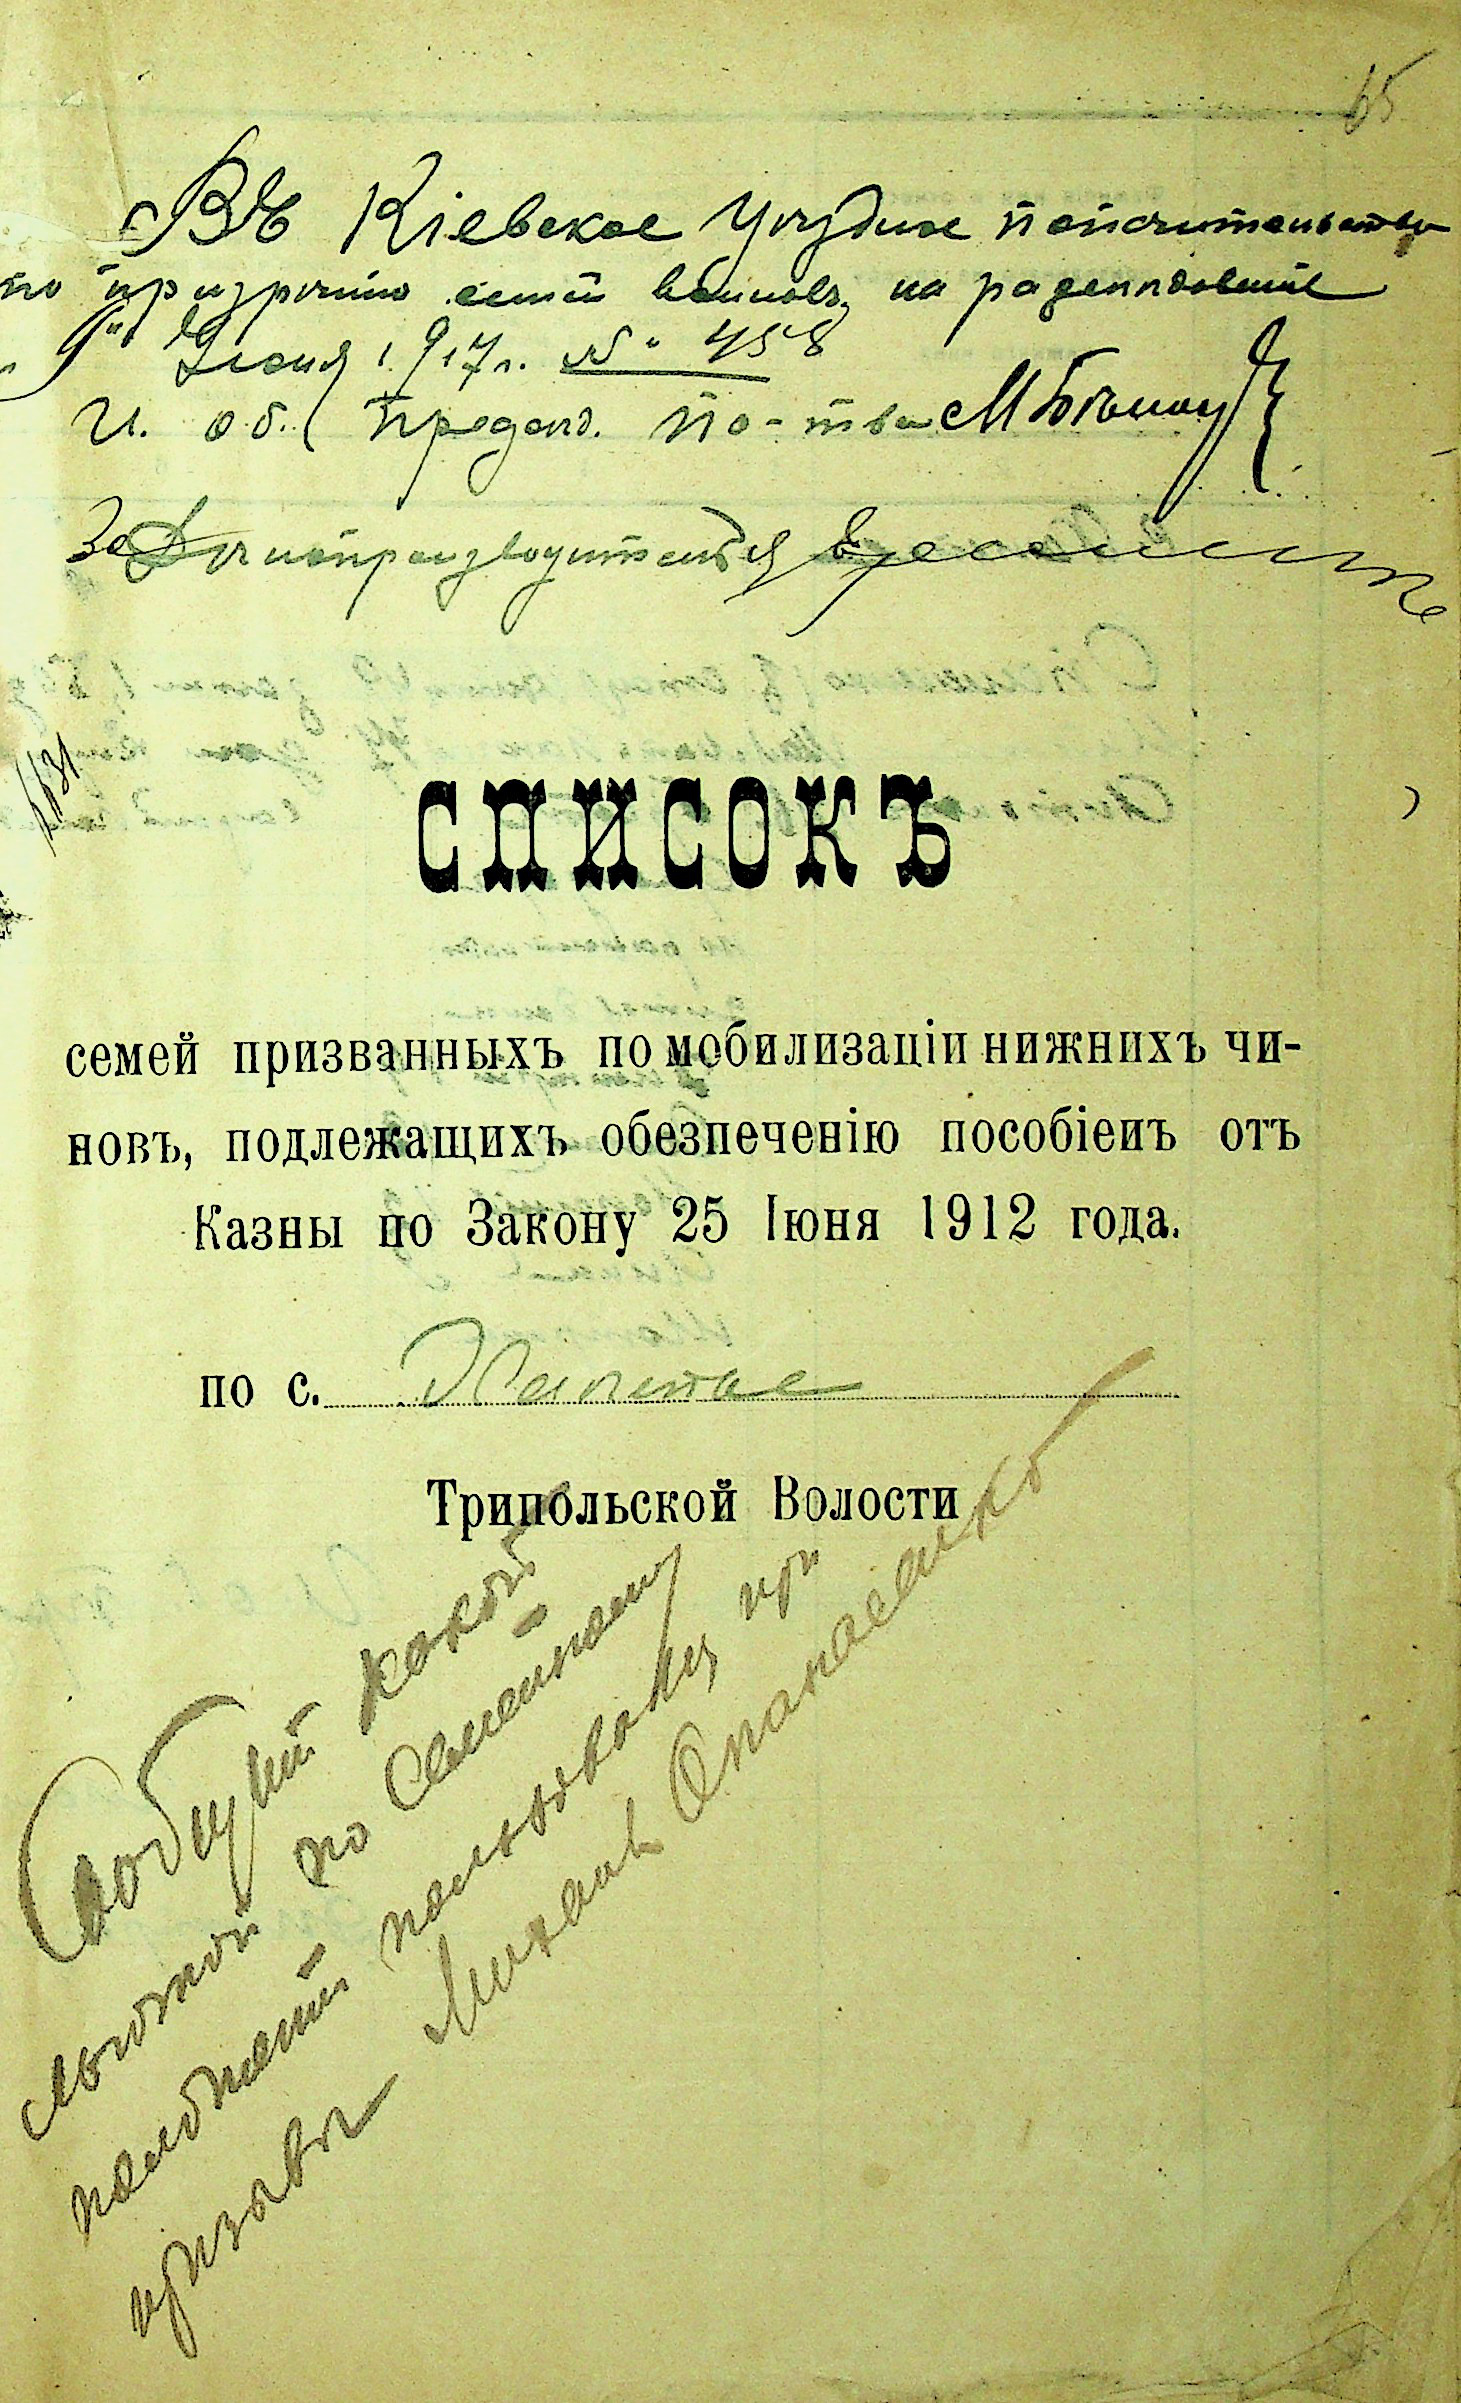 65
Въ Кіевское Уѣздное Попечительство
по призрѣнію семей воиновъ, на распоряженіе
9" Іюня 1917 г. № 458
И. об. Предсѣд. По-тва
За Дѣлопроизводителя
СПИСОКЪ
семей призванныхъ по мобилизаціи нижнихъ чи-
новъ, подлежащихъ обезпеченію пособіемъ отъ
Казны по Закону 25 Іюня 1912 года.
по с. Халепье
Трипольской Волости
Сообщить какой
льготой по семейному
положенію пользовался при
призывѣ Михаилъ Опанасенко